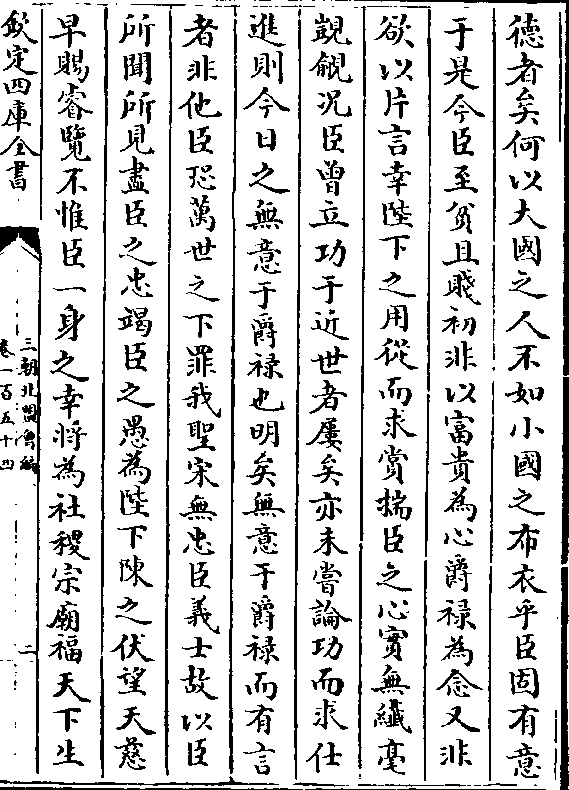 德者矣何以大國之人不如小國之布衣乎臣固有意
于是今臣至貧且賤初非以富貴為心爵祿為念又非
欲以片言幸陛下之用從而求賞揣臣之心實無纖毫
覬覦况臣曾立功于近世者屢矣亦未嘗論功而求仕
進則今日之無意于爵祿也明矣無意于爵祿而有言
者非他臣恐萬世之下罪我聖宋無忠臣義士故以臣
所聞所見盡臣之忠竭臣之愚為陛下陳之伏望天慈
早賜睿覽不惟臣一身之幸將為社稷宗廟福天下生
欽定四庫全書
三朝北盟會編
卷一百五十四
二